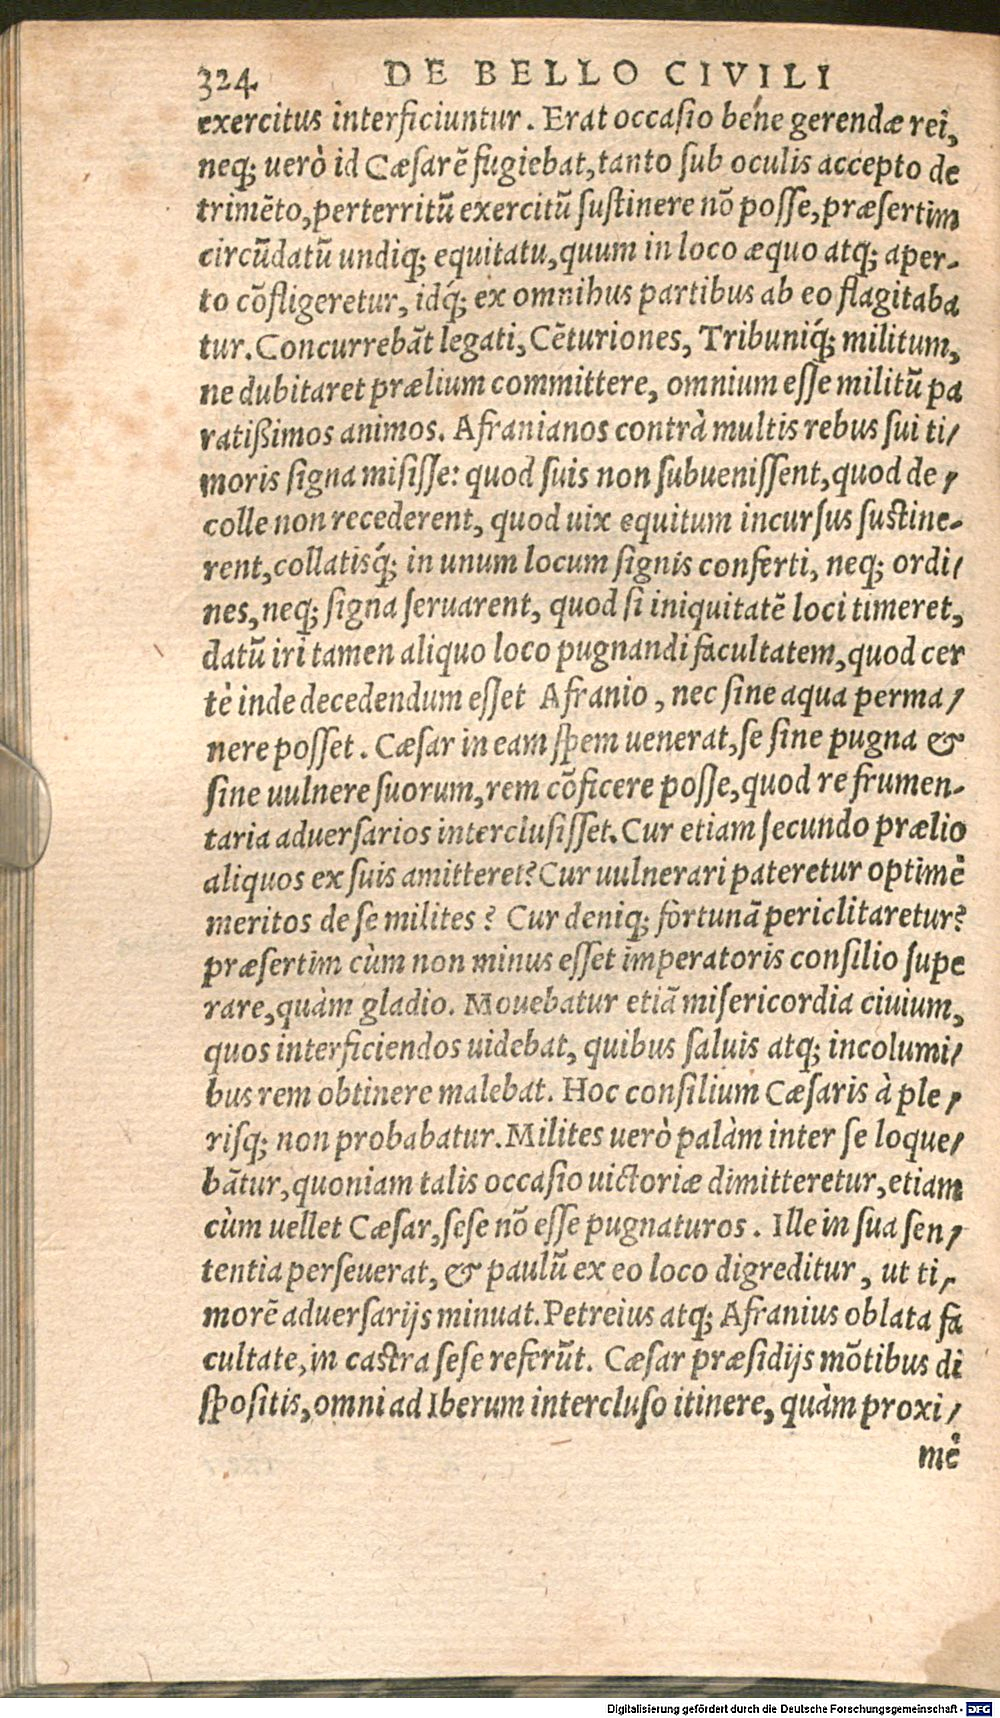 324 DE BELLO CIVILI
exercitus interficiuntur. Erat occasio bene gerendæ rei,
neq; uerò id Cæsarē fugiebat, tanto sub oculis accepto de
trimēto, perterritū exercitū sustinere nō posse, præsertim
circūdatū undiq; equitatu, quum in loco æquo atq; aper-
to cōfligeretur, idq́; ex omnibus partibus ab eo flagitaba
tur. Concurrebāt legati, Cēturiones, Tribuniq́; militum,
ne dubitaret prælium committere, omnium esse militū pa
ratißimos animos. Afranianos contrà multis rebus sui ti/
moris signa misisse: quod suis non subuenissent, quod de/
colle non recederent, quod uix equitum incursus sustine-
rent, collatisq́; in unum locum signis conferti, neq; ordi/
nes, neq; signa seruarent, quod si iniquitatē loci timeret,
datū iri tamen aliquo loco pugnandi facultatem, quod cer
tè inde decedendum esset Afranio, nec sine aqua perma/
nere posset. Cæsar in eam spem uenerat, se sine pugna &
sine uulnere suorum, rem cōficere posse, quod re frumen-
taria aduersarios interclusisset. Cur etiam secundo prælio
aliquos ex suis amitteret? Cur uulnerari pateretur optimè
meritos de se milites? Cur deniq; fortunā periclitaretur?
præsertim cùm non minus esset imperatoris consilio supe
rare, quàm gladio. Mouebatur etiā misericordia ciuium,
quos interficiendos uidebat, quibus saluis atq; incolumi/
bus rem obtinere malebat. Hoc consilium Cæsaris à ple/
risq; non probabatur. Milites uerò palàm inter se loque/
bātur, quoniam talis occasio uictoriæ dimitteretur, etiam
cùm uellet Cæsar, sese nō esse pugnaturos. Ille in sua sen/
tentia perseuerat, & paulū ex eo loco digreditur, ut ti/
morē aduersarijs minuat. Petreius atq; Afranius oblata fa
cultate, in castra sese referūt. Cæsar præsidijs mōtibus di
spositis, omni ad Iberum intercluso itinere, quàm proxi/
mè
Digitalisierung gefördert durch die Deutsche Forschungsgemeinschaft - DFG